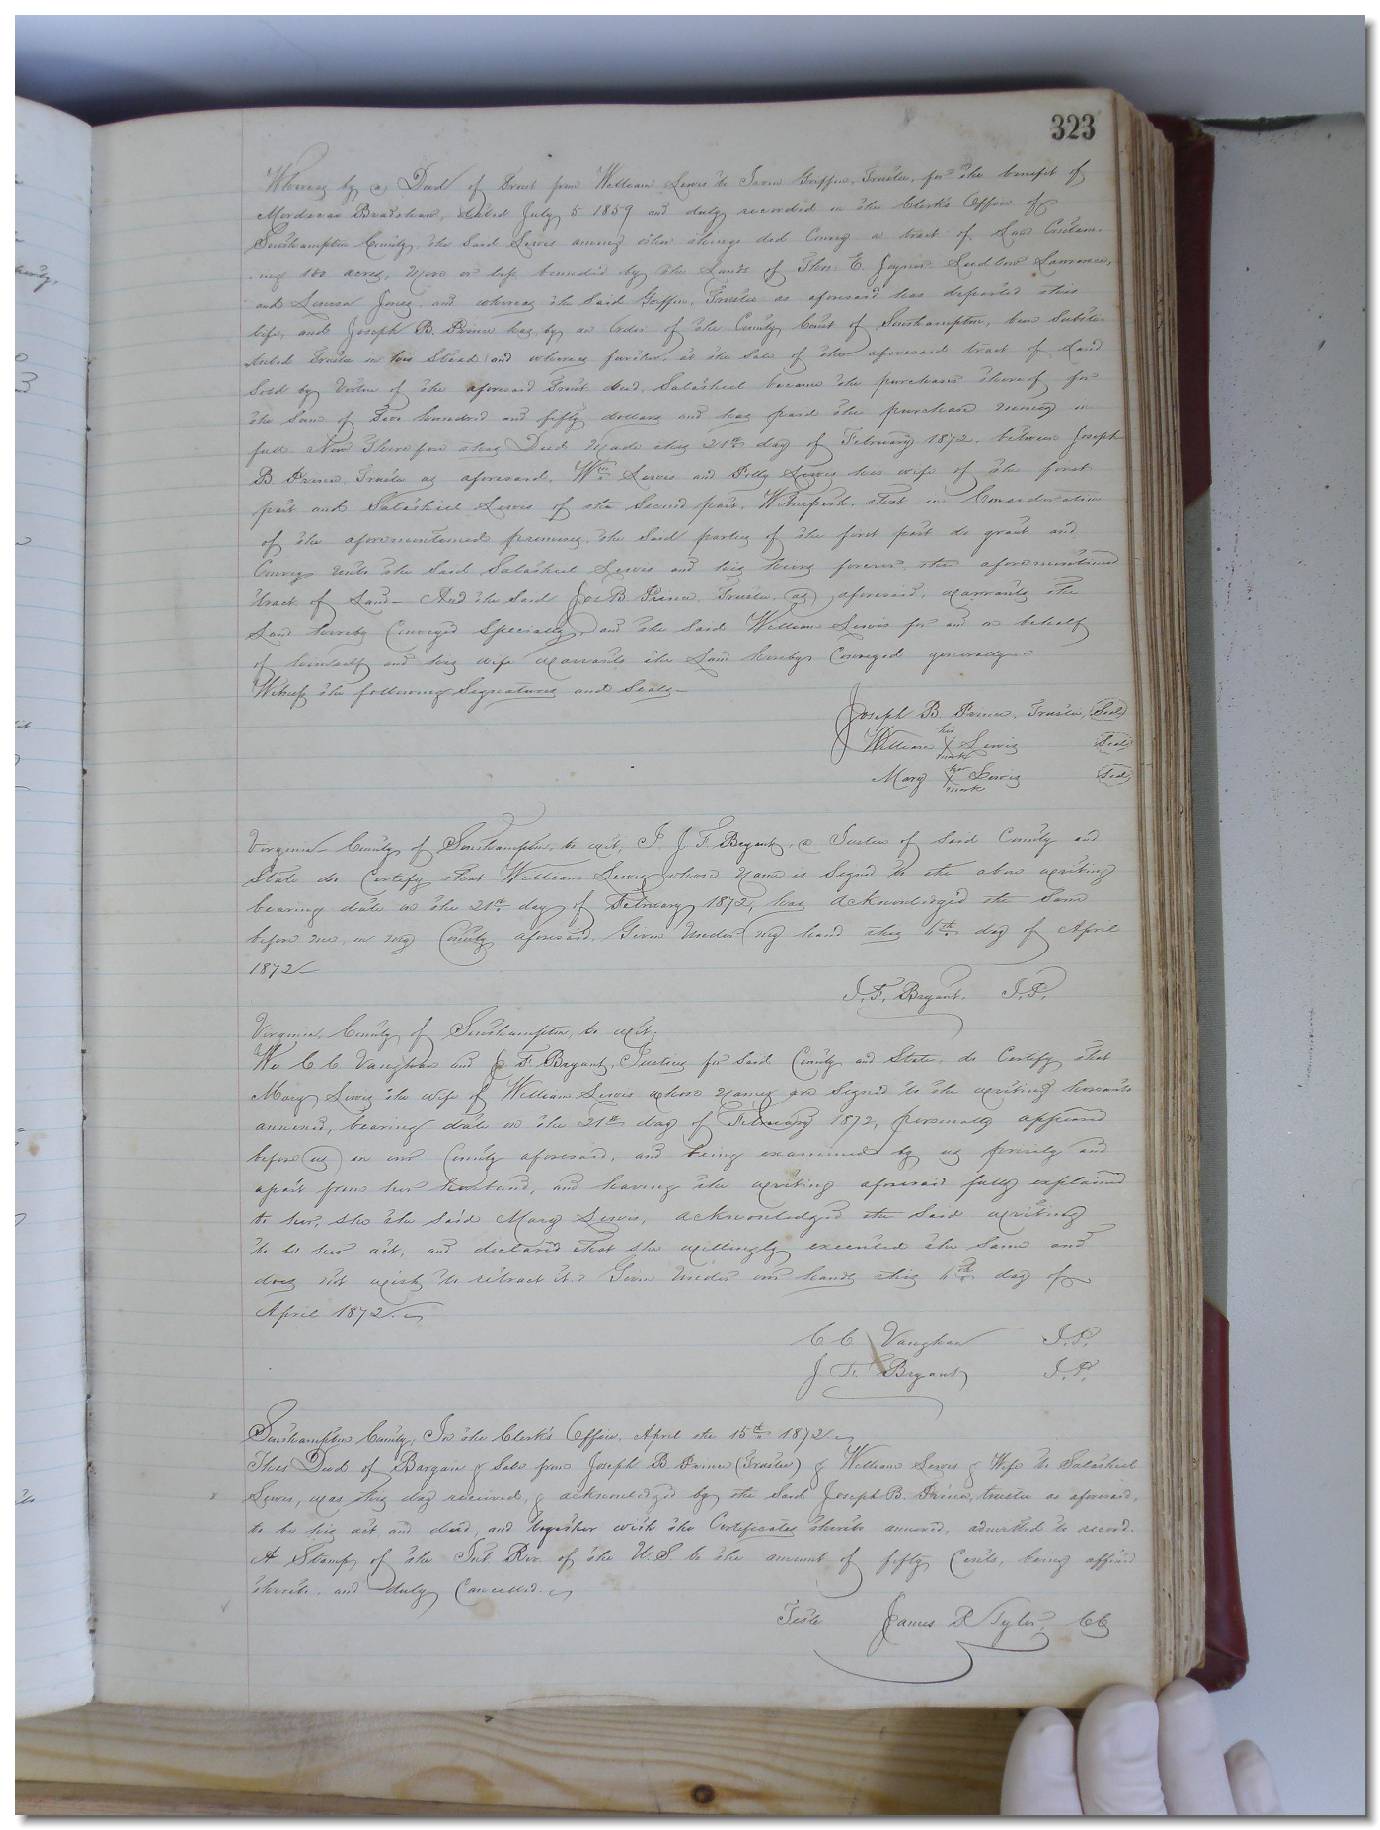 323
Whereas by a Deed of Trust from William Lewis to Irvin Griffin, Trustee, for the benefit of
Mordecai Bradshaw, dated July 5 1859 and duly recorded in the Clerk's Office of
Southampton County, the Said Lewis among other things did Convey a tract of Land Contain-
ing 100 acres, more or less bounded by the Lands of Thos. E. Joyner Ludlow Lawrence,
and Jones, and whereas the Said Griffin, Trustee as aforesaid has departed this
life, and Joseph B. Prince has by an Order of the County Court of Southampton, been Substi-
tuted Trustee in his Stead and whereas further, at the Sale of the aforesaid tract of Land
Sold by Virtue of the aforesaid Trust deed, Salathiel became the purchaser thereof for
the Sum of hundred and fifty dollars and has paid the purchase money in
full Now Therefore this Deed made this 21st day of February 1872, between Joseph
B Prince, Trustee as aforesaid, Wm Lewis and Polly Lewis his wife of the first
part and Salathiel Lewis of the Second part, Witnesseth, that in Consideration
of the aforementioned premises, the Said parties of the first part do grant and
Convey unto the Said Salathiel Lewis and his heirs forever the aforementioned
tract of Land— And the Said Jos B Prince, Trustee, (as) aforesaid, warrants the
Land hereby Conveyed Specially, and the Said William Lewis for and on behalf
of himself and his wife warrants the Land hereby Conveyed generally—
Witness the following Signatures and Seals—
Joseph B. Prince, Trustee, (Seal)
William his X mark Lewis (Seal)
Mary her X mark Lewis (Seal)
Virginia— County of Southampton, to wit; I, J. F. Bryant, a Justice of Said County and
State do Certify that William Lewis whose name is Signed to the above writing
bearing date on the 21st day of February 1872, has acknowledged the Same
before me, in my County aforesaid. Given Under my hand this 6th day of April
1872—
J. F. Bryant. J.P.
Virginia, County of Southampton, to wit;
We C C Vaughan and J. F. Bryant, Justices for Said County and State, do Certify that
Mary Lewis the wife of William Lewis whose names are Signed to the writing hereunto
annexed, bearing date on the 21st day of February 1872, personally appeared
before (us) in our County aforesaid, and being examined by us privily and
apart from her husband, and having the writing aforesaid fully explained
to her, she the Said Mary Lewis, acknowledged the Said writing
to be her act, and declared that she willingly executed the Same and
does not wish to retract it. Given Under our hands this 6th day of
April 1872.
C C Vaughan J.P.
J. F. Bryant J.P.
Southampton County, In the Clerk's Office, April the 15th 1872.
This Deed of Bargain & Sale from Joseph B Prince (Trustee) & William Lewis & Wife to Salathiel
Lewis, was this day received, & acknowledged by the Said Joseph B. Prince, trustee as aforesaid,
to be his act and deed, and together with the Certificates thereto annexed, admitted to record.
A Stamp of the Int Rev. of the U.S. to the amount of fifty Cents, being affixed
thereto, and duly Cancelled.
Teste James R Tyler, CC